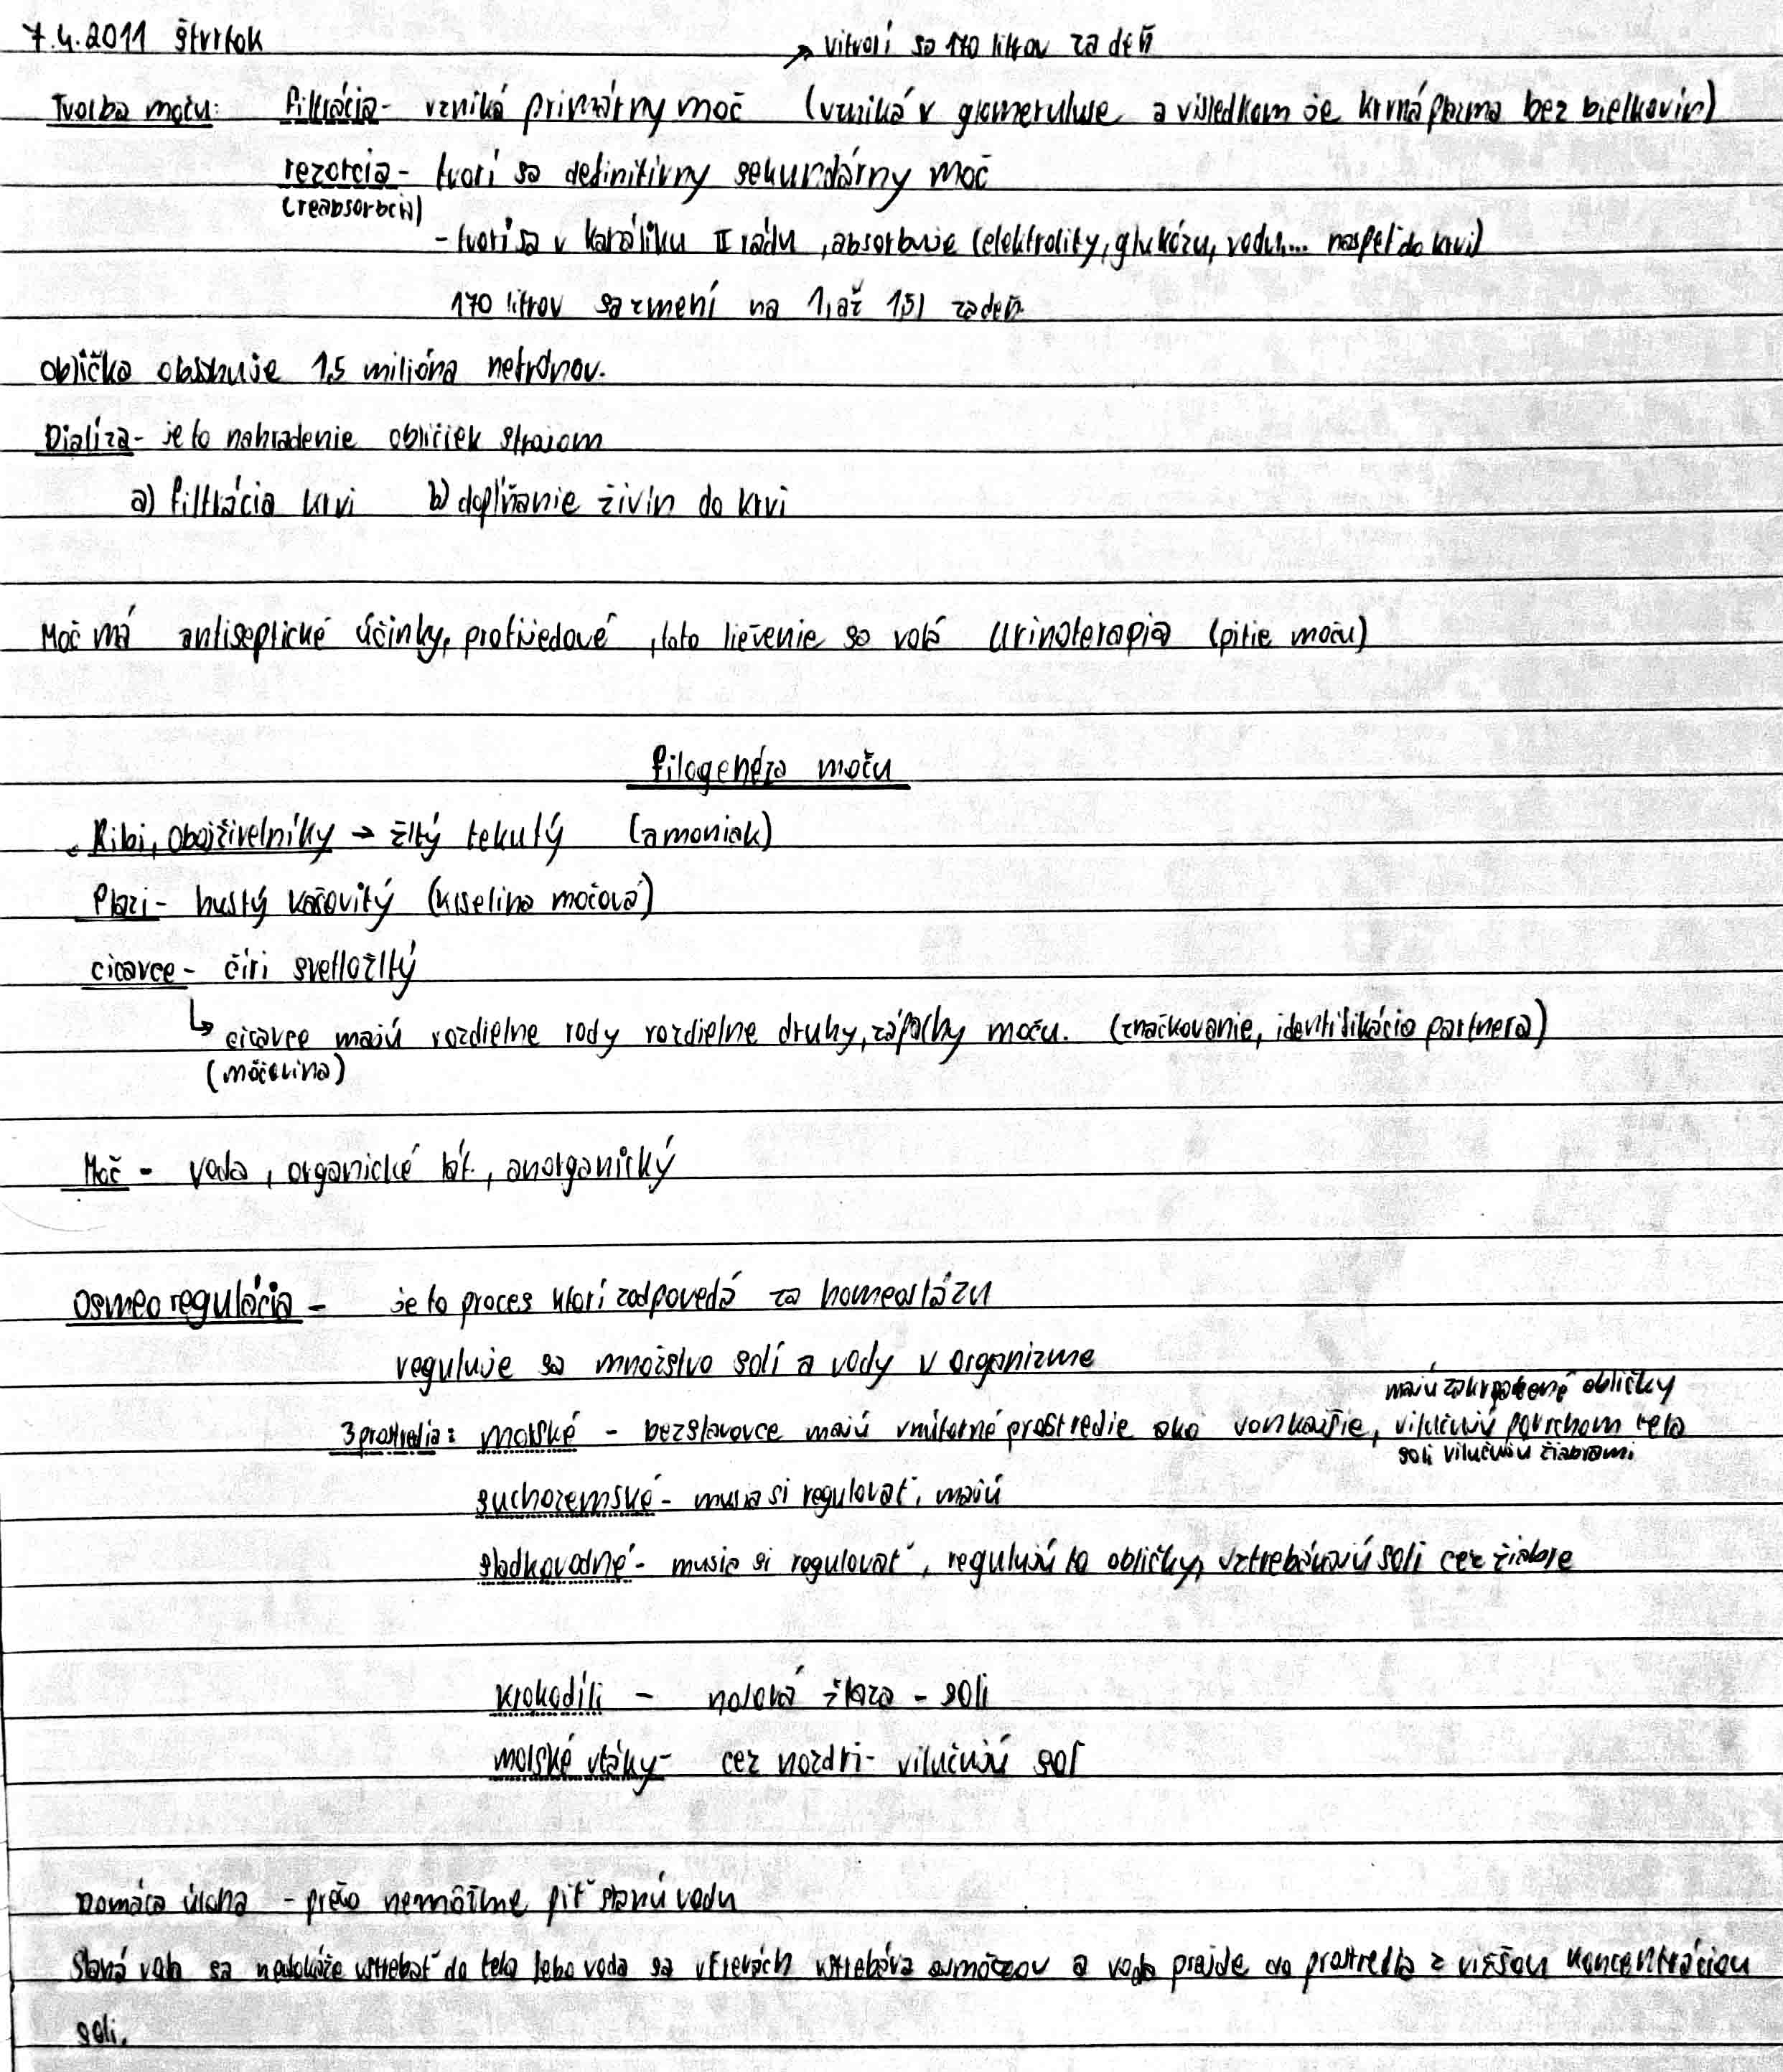 7.4.2011 štvrtok
→ vitvorí sa 170 litrov za deň
Tvorba moču: filtrácia - vzniká primárny moč (vzniká v glomeruluse a visledkom je krvná plazma bez bielkovín)
rezorcia - tvorí sa definitívny sekundárny moč
(reabsorbcia)
- tvorí sa v kanáliku II rádu, absorbuje (elektrolity, glukózu, vodu... naspeť do krvi)
170 litrov sa zmení na 1, až 1,5l za deň
oblička obsahuje 1,5 milióna nefrónov.
Dialíza - je to nahradenie obličiek strojom
a) filtrácia krvi b) doplňanie živín do krvi
Moč má antiseptické účinky, protijedové, toto liečenie sa volá urinoterapia (pitie moču)
filogenéza moču
Ribi, obojživelníky → žltý tekutý (amoniak)
Plazi - hustý kašovitý (kiselina močová)
cicavce - číri svetložltý
↳ cicavce majú rozdielne rody rozdielne druhy, zápachy moču. (značkovanie, identifikácia partnera)
(močovina)
Moč - voda, organické lát., anorganický
Osmeoregulácia - je to proces ktorí zodpovedá za homeostázu
reguluje sa množstvo solí a vody v organizme
majú zakrpatené obličky
3 prostredia: morské - bezstavovce majú vnútorné prostredie ako vonkajšie, vilučujú povrchom tela
soli vilučujú žiabrami
suchozemské - musia si regulovať, majú
sladkovodné - musia si regulovať, regulujú to obličky, vztrebávajú soli cez žiabre
krokodíli - nosová žľaza - soli
morské vtáky - cez nozdri - vilučujú soľ
Domáca úloha - prečo nemôžme piť slanú vodu
Slaná voda sa nedokáže vstrebať do tela lebo voda sa v črevách vstrebáva osmózou a voda prejde do prostredia z višŠou koncentráciou
soli.